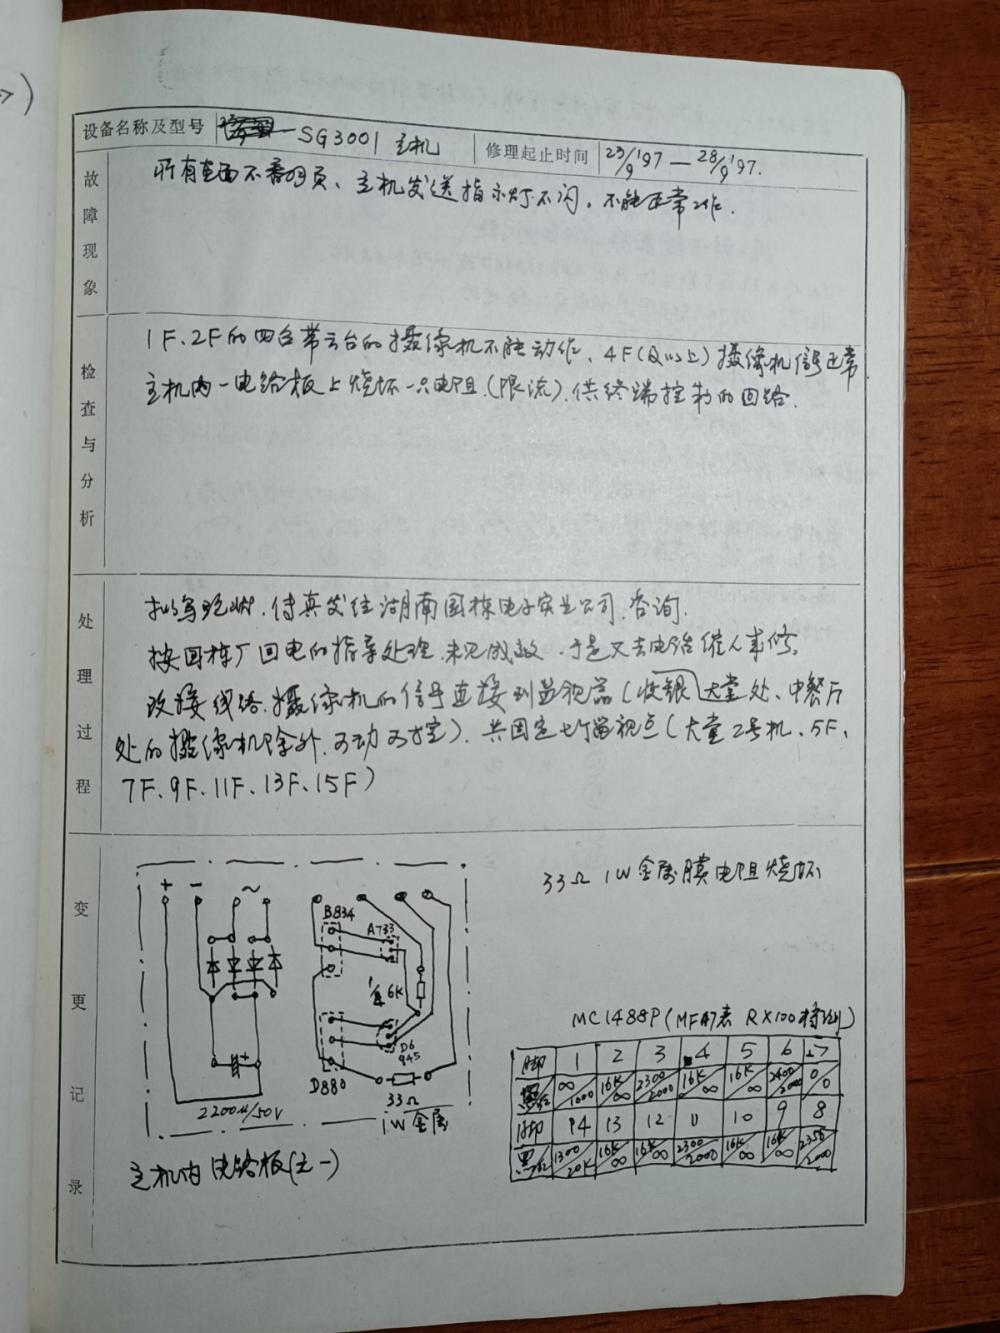 设备名称及型号 SG3001 主机 修理起止时间 23/9'97 — 28/9'97.
故障现象
所有画面不番羽页、主机发送指示灯不闪,不能正常工作.
检查与分析
1F、2F的四台带云台的摄像机不能动作、4F(及以上)摄像机信号正常.
主机内一电路板上烧坏一只电阻(限流).供终端控制的回路.
处理过程
拟写现状.传真发往湖南国栋电子实业公司.咨询.
按国栋厂回电的指导处理.未见成效.于是又去电话催人来修.
改接线路.摄像机的信号直接到监视器(收银 大堂处、中餐厅
处的摄像机除外.可动可控).共固定七个监视点(大堂2号机、5F、
7F、9F、11F、13F、15F)
变更记录
33Ω 1W金属膜电阻烧坏
+ − ~
B834 A733
6K
D6
945
D880
33Ω
1W金属
2200u/50V
主机内电路板(之一)
MC1488P(MF47表 R×100档测)
脚 1 2 3 4 5 6 7
∞/1000 16K/∞ 2300/2000 16K/∞ 16K/∞ 2400/2000 0/0
脚 14 13 12 11 10 9 8
黑/红 1300/20K 16K/∞ 16K/∞ 2300/2000 16K/∞ 16K/∞ 2350/2000